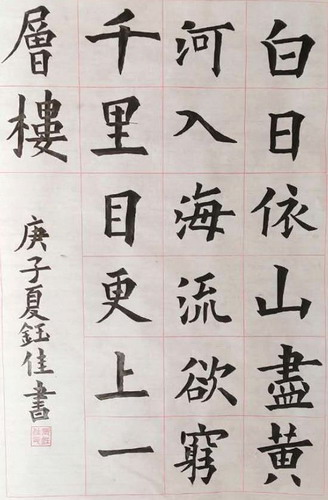 白日依山盡黃
河入海流欲窮
千里目更上一
層樓
庚子夏鈺佳書